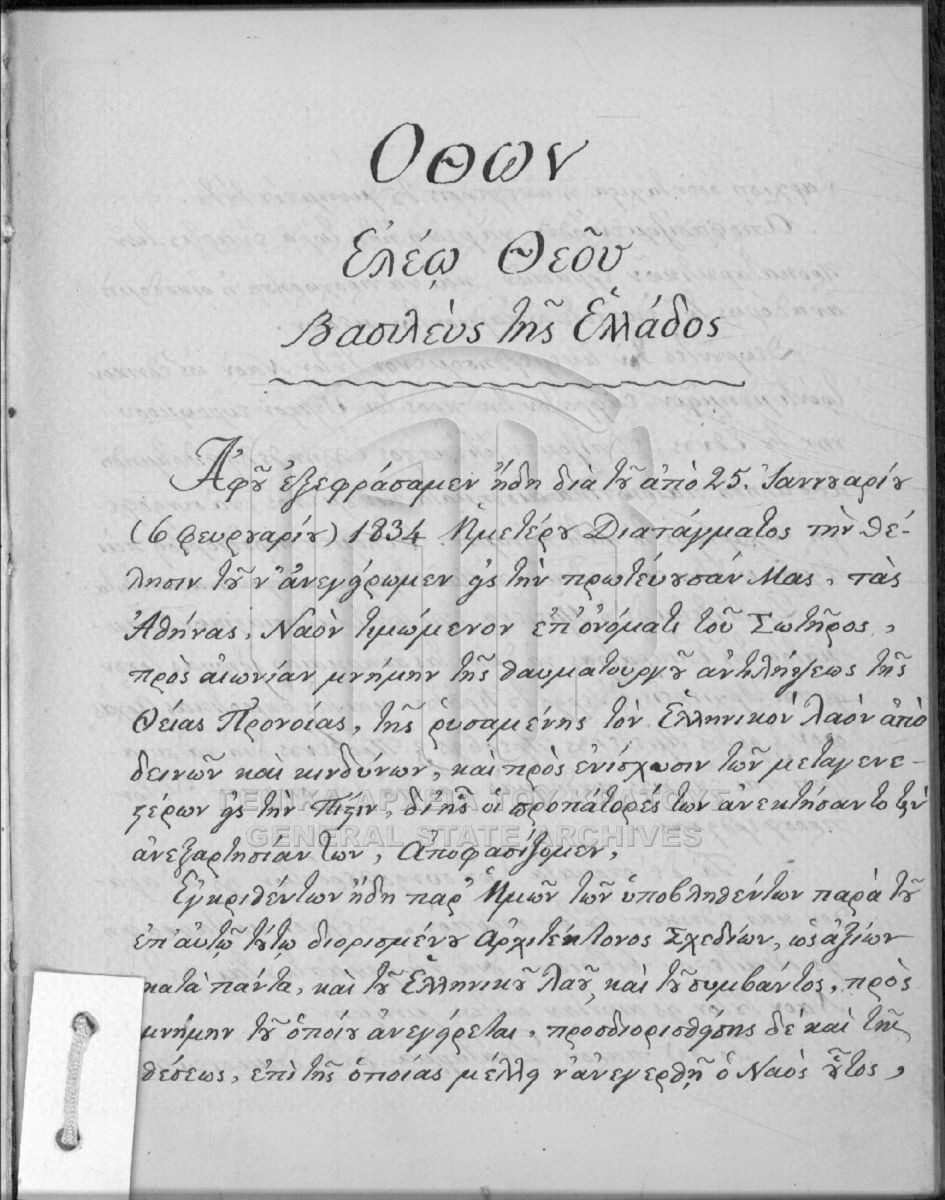 Οθων
Ἐλέῳ Θεοῦ
Βασιλεὺς τῆς Ἑλλάδος
Ἀφοῦ ἐξεφράσαμεν ἤδη διὰ τοῦ ἀπὸ 25. Ἰαννουαρίου
(6 Φευρουαρίου) 1834 Ἡμετέρου Διατάγματος τὴν θέ-
λησιν τοῦ ν' ἀνεγείρωμεν εἰς τὴν πρωτεύουσάν Μας, τὰς
Ἀθήνας, Ναὸν τιμώμενον ἐπ' ὀνόματι τοῦ Σωτῆρος,
πρὸς αἰωνίαν μνήμην τῆς θαυματουργοῦ ἀντιλήψεως τῆς
Θείας Προνοίας, τῆς ῥυσαμένης τὸν Ἑλληνικὸν λαὸν ἀπὸ
δεινῶν καὶ κινδύνων, καὶ πρὸς ἐνίσχυσιν τῶν μεταγενε-
στέρων εἰς τὴν Πίστιν, δι' ἧς οἱ προπάτορές των ἀνεκτήσαντο τὴν
ΓΕΝΙΚΑ ΑΡΧΕΙΑ ΤΟΥ ΚΡΑΤΟΥΣ
GENERAL STATE ARCHIVES
ἀνεξαρτησίαν των, Ἀποφασίζομεν,
Ἐγκριθέντων ἤδη παρ' Ἡμῶν τῶν ὑποβληθέντων παρὰ τοῦ
ἐπ' αὐτῷ τούτῳ διορισμένου Ἀρχιτέκτονος Σχεδίων, ὡς ἀξίων
κατὰ πάντα, καὶ τοῦ Ἑλληνικοῦ λαοῦ, καὶ τοῦ συμβάντος, πρὸς
μνήμην τοῦ ὁποίου ἀνεγείρεται, προσδιορισθείσης δὲ καὶ τῆς
θέσεως, ἐπὶ τῆς ὁποίας μέλλει ν' ἀνεγερθῇ ὁ Ναὸς οὗτος,